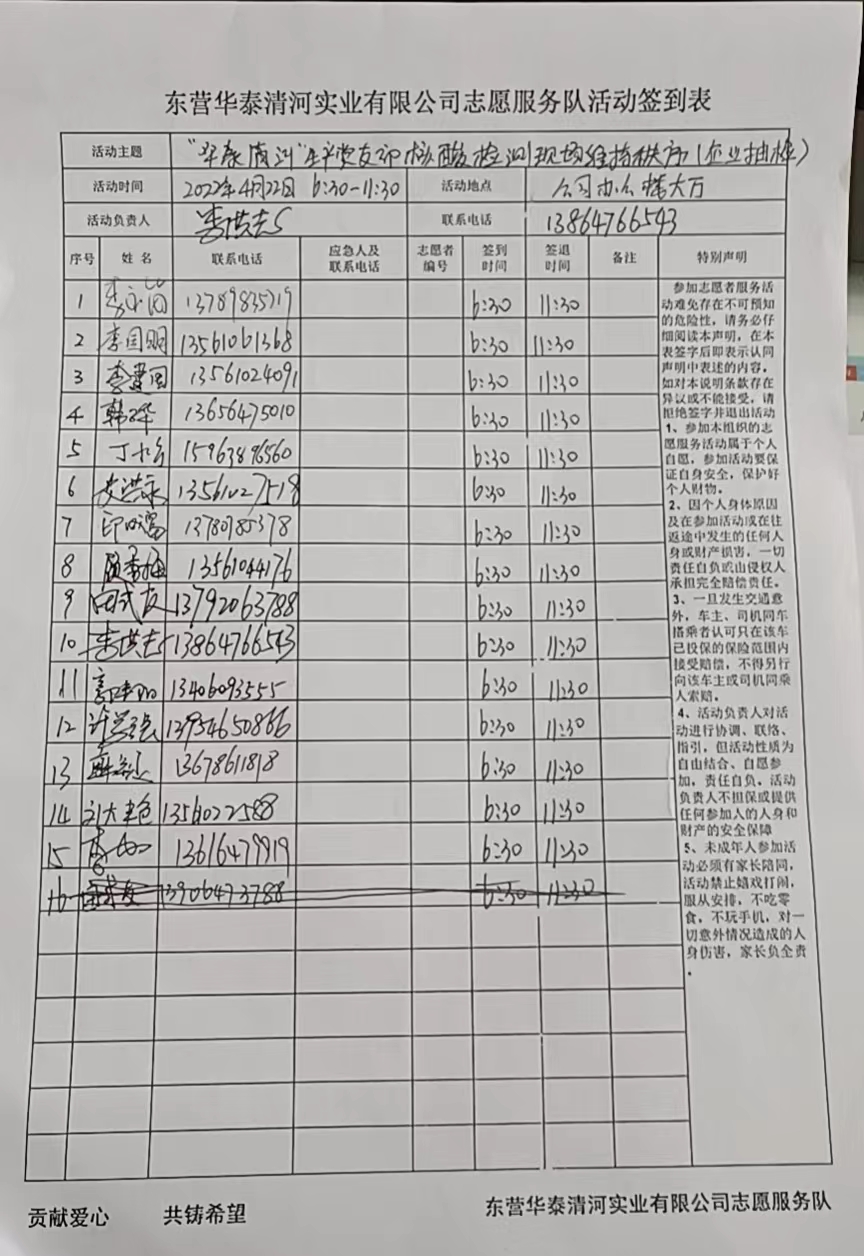 东营华泰清河实业有限公司志愿服务队活动签到表
活动主题 "华泰清河"生产党支部核酸检测现场维持秩序(企业抽样)
活动时间 2022年4月22日 6:30-11:30 活动地点 公司办公楼大厅
活动负责人 李洪志 联系电话 13864766543
序号 姓名 联系电话 应急人及联系电话 志愿者编号 签到时间 签退时间 备注 特别声明
1 13789835719 6:30 11:30
2 李国明 13561061368 6:30 11:30
3 李建国 13561024091 6:30 11:30
4 韩晔 13656475010 6:30 11:30
5 15963896560 6:30 11:30
6 13561027518 6:30 11:30
7 13780785378 6:30 11:30
8 13561044176 6:30 11:30
9 13792063788 6:30 11:30
10 李洪志 13864766543 6:30 11:30
11 13406093555 6:30 11:30
12 13954650866 6:30 11:30
13 13678611818 6:30 11:30
14 6:30 11:30
15 13616479919 6:30 11:30
16 13906473788 6:30 11:30
参加志愿者服务活
动难免存在不可预知
的危险性，请务必仔
细阅读本声明，在本
表签字后即表示认同
声明中表述的内容，
如对本说明条款存在
异议或不能接受，请
拒绝签字并退出活动
1、参加本组织的志
愿服务活动属于个人
自愿，参加活动要保
证自身安全，保护好
个人财物。
2、因个人身体原因
及在参加活动或在往
返途中发生的任何人
身或财产损害，一切
责任自负或由侵权人
承担完全赔偿责任。
3、一旦发生交通意
外，车主、司机同车
搭乘者认可只在该车
已投保的保险范围内
接受赔偿，不得另行
向该车主或司机同乘
人索赔。
4、活动负责人对活
动进行协调、联络、
指引，但活动性质为
自由结合、自愿参
加，责任自负。活动
负责人不担保或提供
任何参加人的人身和
财产的安全保障
5、未成年人参加活
动必须有家长陪同，
活动禁止嬉戏打闹，
服从安排，不吃零
食，不玩手机，对一
切意外情况造成的人
身伤害，家长负全责
。
贡献爱心 共铸希望 东营华泰清河实业有限公司志愿服务队